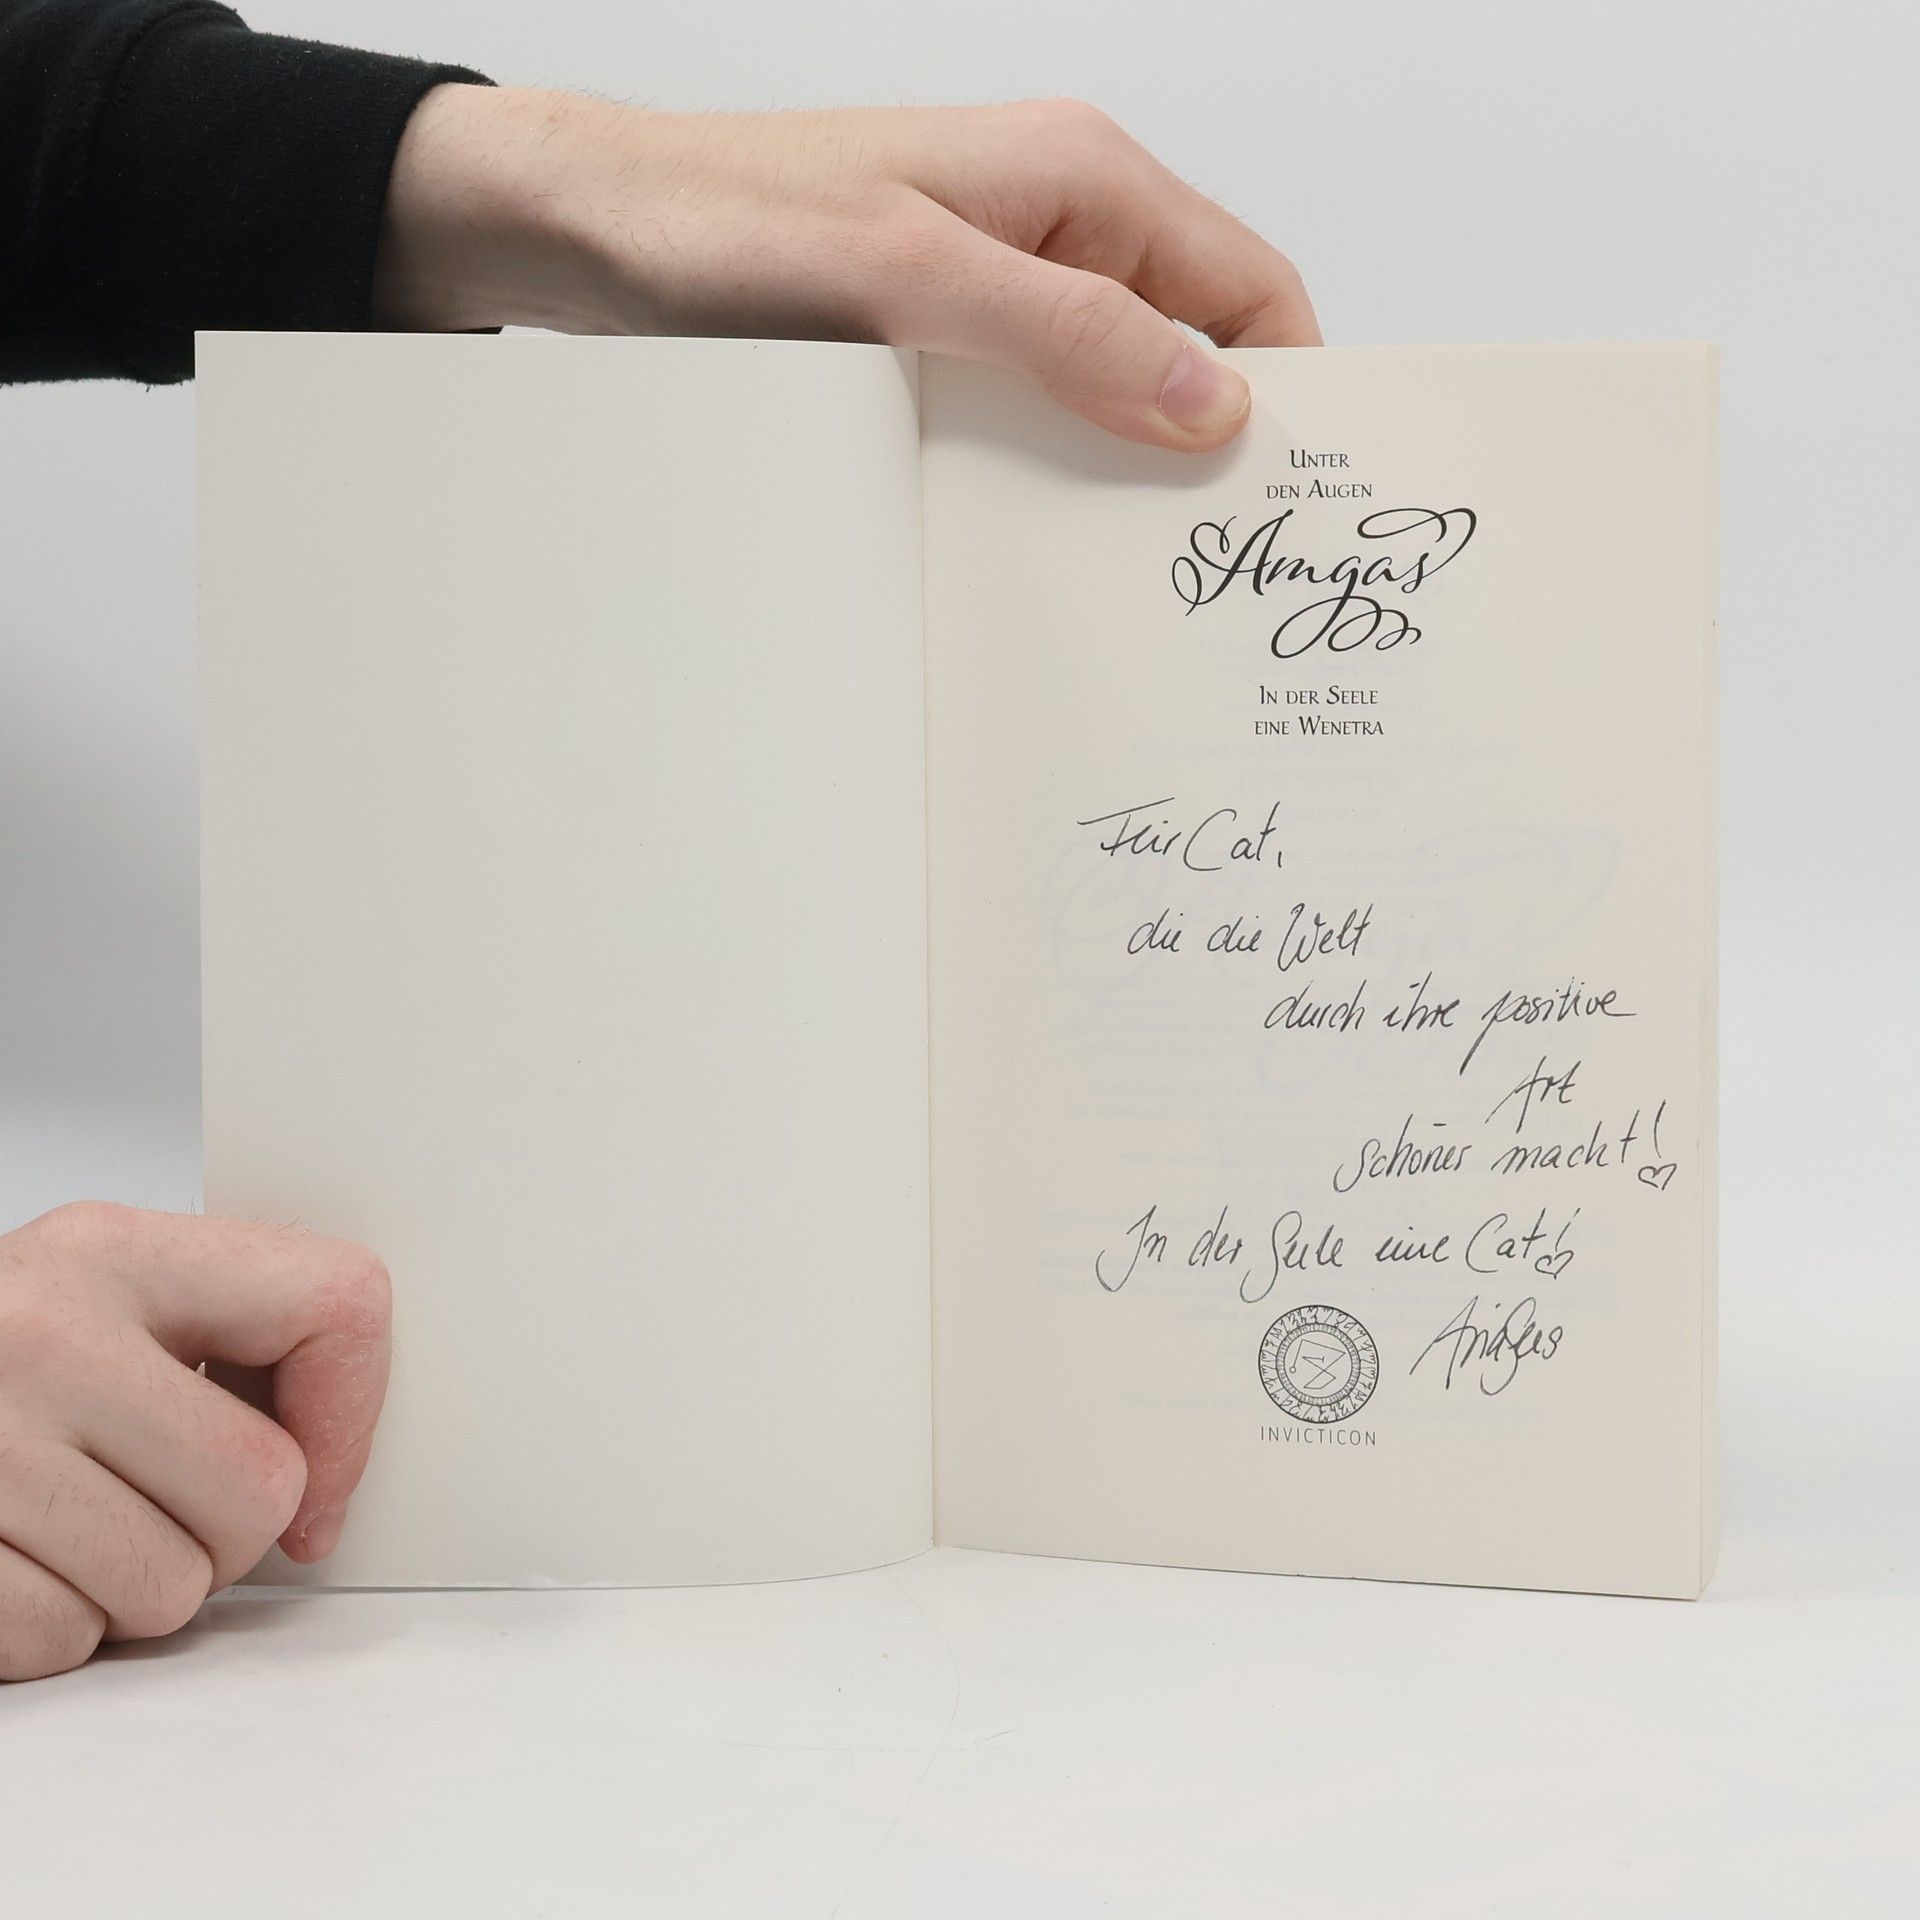 UNTER
DEN AUGEN
Amgas
IN DER SEELE
EINE WENETRA
Für Cat,
die die Welt
durch ihre positive
Art
schöner macht!
In der Seele eine Cat!
INVICTICON